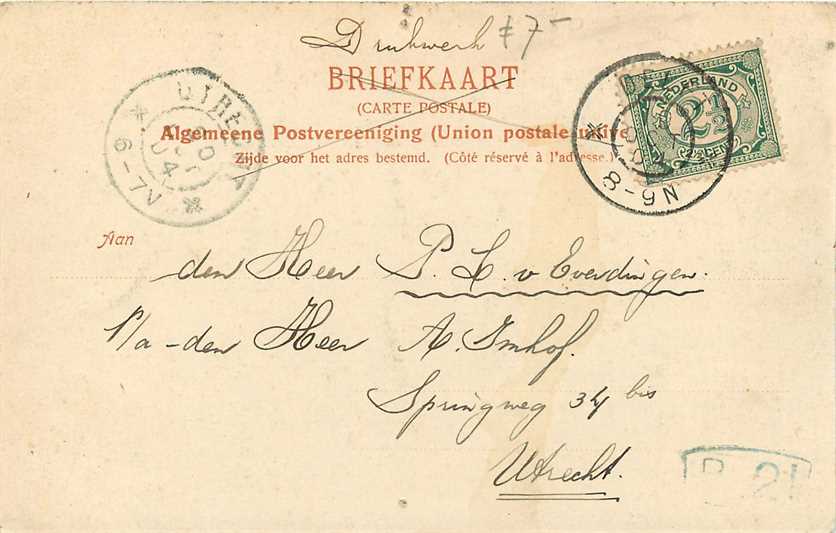 Drukwerk f 7-
BRIEFKAART
(CARTE POSTALE)
Algemeene Postvereeniging (Union postale unive
Zijde voor het adres bestemd. (Côté réservé à l'adresse.)
NEDERLAND
2½
UTRECHT
04
6-7V
8-9N
Aan
den Heer P. L. v Everdingen.
P/a den Heer A. Imhof.
Springweg 34 bis
Utrecht.
B 21